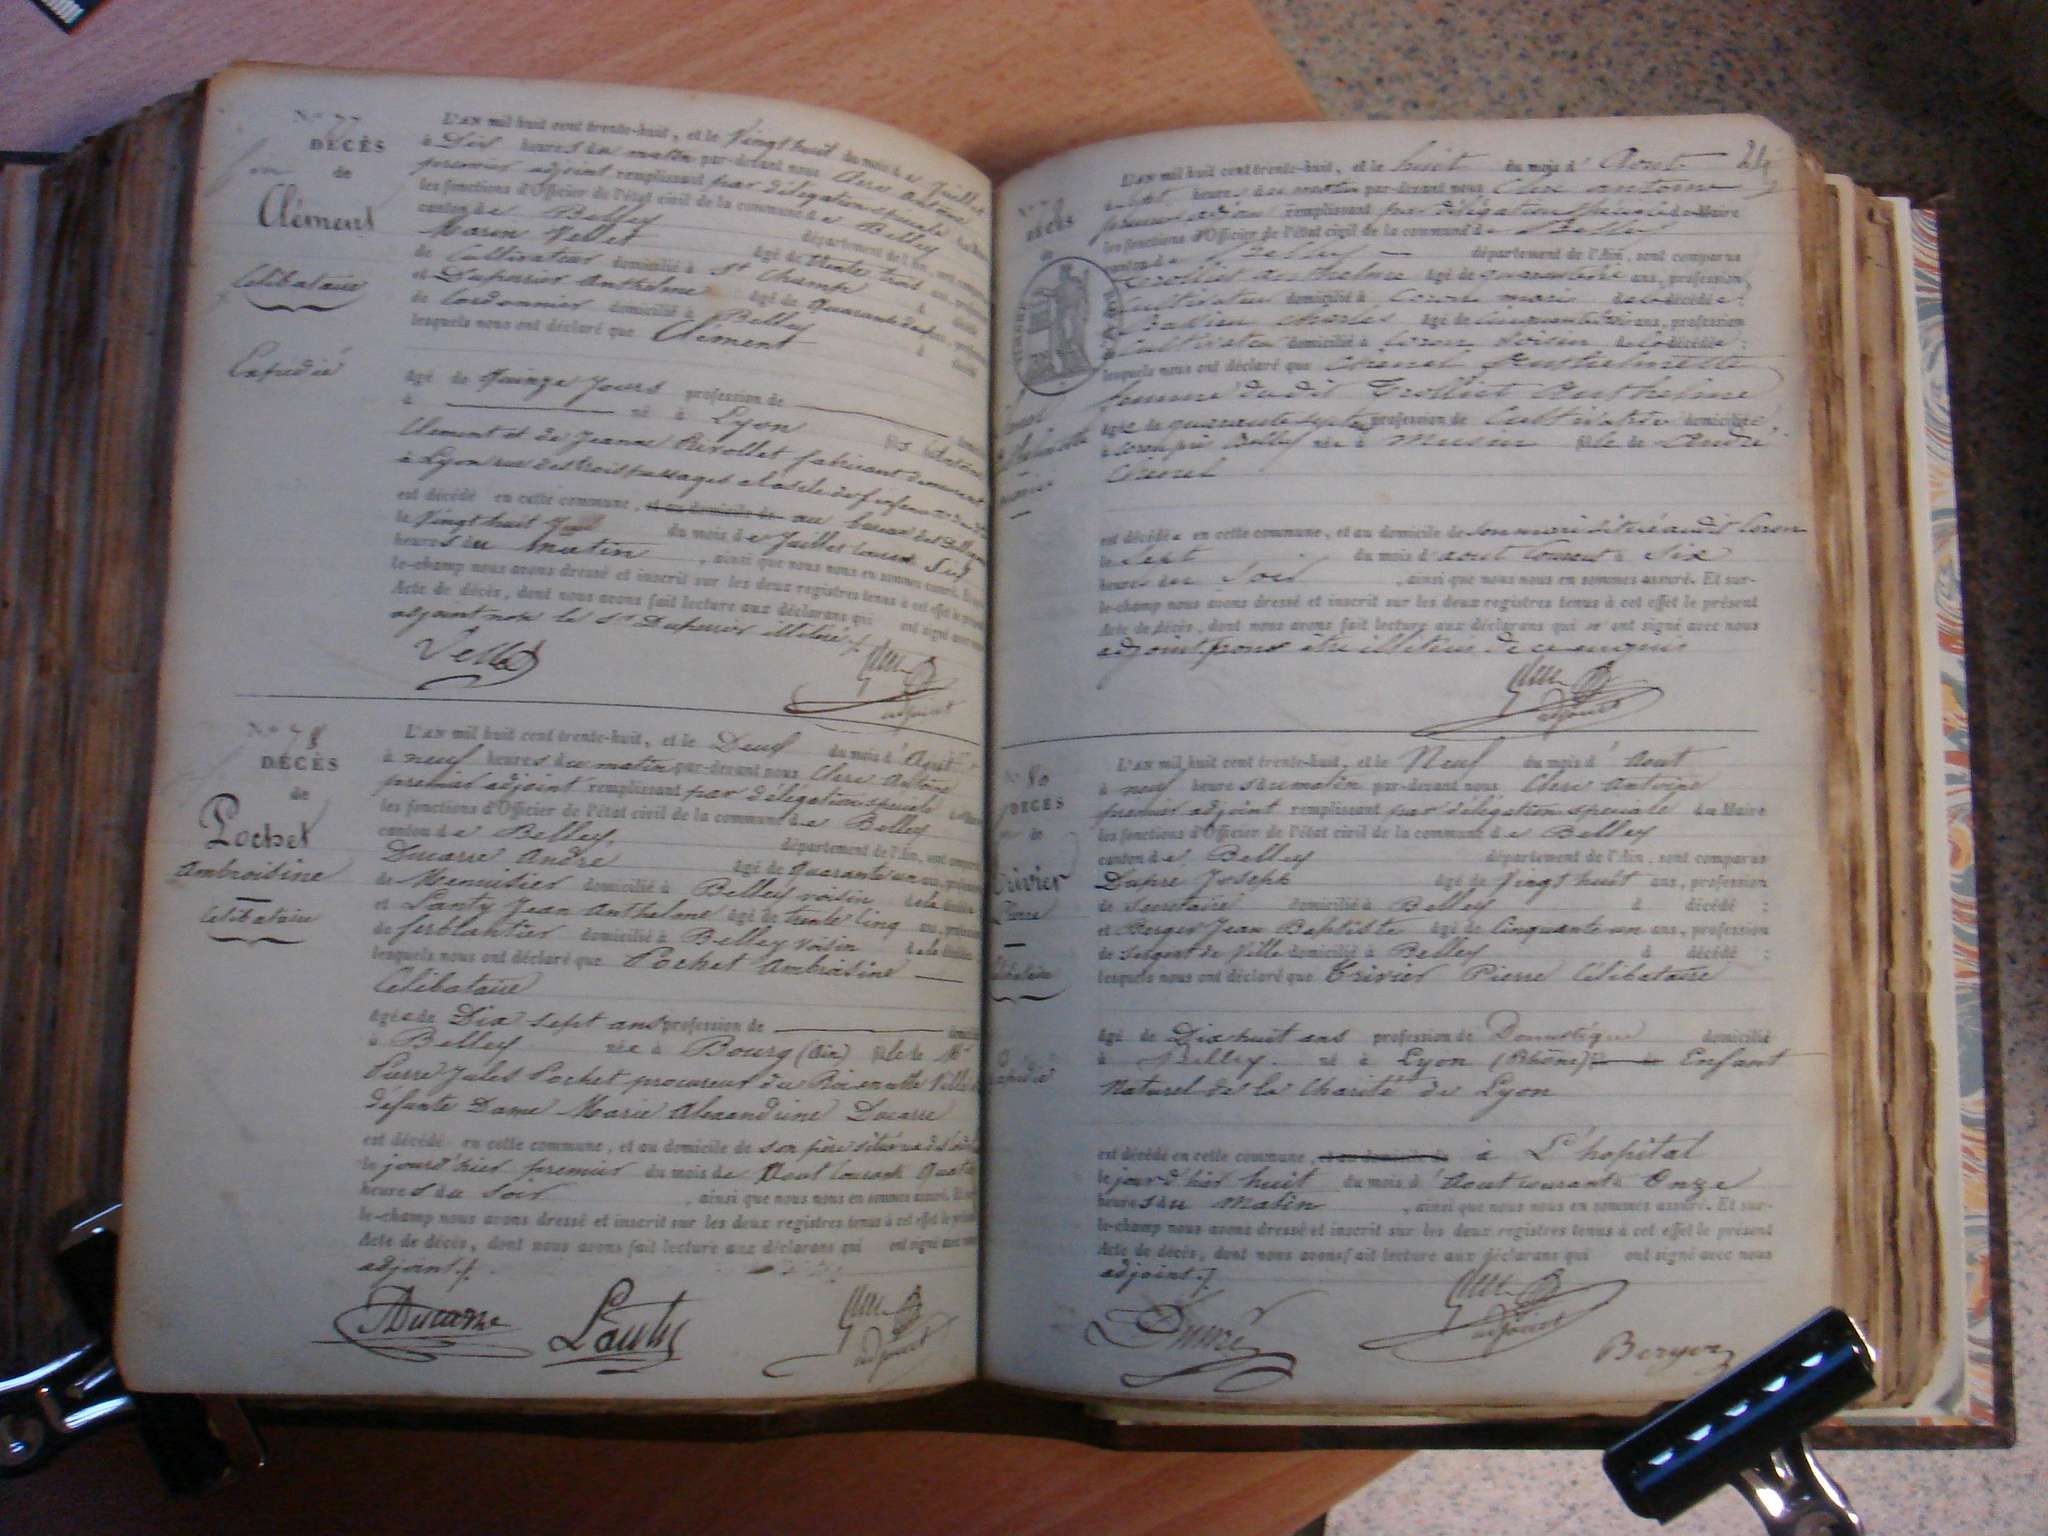 N.º 77
DÉCÈS
de
Clément
Célibataire
Expédié
L'AN mil huit cent trente-huit, et le Vingt huit du mois de Juillet
à Dix heures du matin par-devant nous Clerc Antoine
premier adjoint remplissant par délégation speciale
les fonctions d'Officier de l'état civil de la commune de Belley
canton de Belley département de l'Ain, sont
âgé de trente trois ans,
de Cultivateur domicilié à St Champ
et Duperrier Anthelme âgé de Quarante
de Cordonnier domicilié à Belley à décédé
lesquels nous ont déclaré que Clément
âgé de Quinze Jours profession de
à né à Lyon fils
Clément et de Jeanne Rivollet fabricant
à Lyon rue des trois passages
est décédé en cette commune, et au domicile de au bureau des
le Vingt huit du mois de Juillet courant
heures du matin, ainsi que nous nous en sommes assuré.
le-champ nous avons dressé et inscrit sur les deux registres tenus à cet effet le présent
Acte de décès, dont nous avons fait lecture aux déclarans qui ont signé avec nous
adjoint non le Sr Duperrier illiteré
adjoint
N.º 78
DÉCÈS
de
Pochet
Ambroisine
Célibataire
L'AN mil huit cent trente-huit, et le Deux du mois d'Aout
à neuf heures du matin par-devant nous Clerc Antoine
premier adjoint remplissant par délégation speciale
les fonctions d'Officier de l'état civil de la commune de Belley
canton de Belley, département de l'Ain, sont
Ducarre André âgé de Quarante un ans,
de Menuisier domicilié à Belley voisin de la
et Lanty Jean Anthelme âgé de trente cinq ans,
de ferblantier domicilié à Belley voisin de la
lesquels nous ont déclaré que Pochet Ambroisine
Célibataire
âgée de Dix sept ans profession de
à Belley née à Bourg (Ain) fille de Mr
Pierre Jules Pochet procureur du Roi en cette Ville
defunte Dame Marie Alexandrine Ducarre
est décédé en cette commune, et au domicile de son père situé
le jour d'hier premier du mois de Aout courant Quatre
heures du soir, ainsi que nous nous en sommes assuré. Et
le-champ nous avons dressé et inscrit sur les deux registres tenus à cet effet le présent
Acte de décès, dont nous avons fait lecture aux déclarans qui ont signé avec nous
adjoint
Ducarre Lanty
adjoint
DÉCÈS
L'AN mil huit cent trente-huit, et le huit du mois d'Aout
heures du matin par-devant nous Clerc antoine
adjoint remplissant par délégation du Maire
les fonctions d'Officier de l'état civil de la commune de Belley
canton de Belley département de l'Ain, sont comparus
Grolliet anthelme âgé de ans, profession
cultivateur domicilié à Coron mari de la décédée :
charles âgé de ans, profession
de Cultivateur domicilié à Coron voisin de la décédée :
lesquels nous ont déclaré que Anthelmette
femme du dit Grolliet Anthelme
âgée de quarante sept profession de Cultivatrice domiciliée
à Coron près Belley née à fille de André
est décédée en cette commune, et au domicile de son mari situé audit Coron
le sept du mois d'aout courant à Six
heures du Soir, ainsi que nous nous en sommes assuré. Et sur-
le-champ nous avons dressé et inscrit sur les deux registres tenus à cet effet le présent
Acte de décès, dont nous avons fait lecture aux déclarans qui n'ont signé avec nous
adjoint pour être illiteré de ce enquis
adjoint
N.º 80
DÉCÈS
de
Trivier
Pierre
Célibataire
Expédié
L'AN mil huit cent trente-huit, et le Neuf du mois d'Aout
à neuf heures du matin par-devant nous Clerc Antoine
premier adjoint remplissant par délégation speciale du Maire
les fonctions d'Officier de l'état civil de la commune de Belley
canton de Belley département de l'Ain, sont comparus
Dupré Joseph âgé de Vingt huit ans, profession
de Secretaire domicilié à Belley à décédé :
et Berger Jean Baptiste âgé de Cinquante un ans, profession
de Sergent de Ville domicilié à Belley à décédé :
lesquels nous ont déclaré que Trivier Pierre Célibataire
âgé de Dix huit ans profession de Domestique domicilié
à Belley. né à Lyon (Rhône) fils de Enfant
Naturel de la Charité de Lyon
est décédé en cette commune, et au domicile de à L'hopital
le jour d'hier huit du mois d'Aout courant à Onze
heures du Matin, ainsi que nous nous en sommes assuré. Et sur-
le-champ nous avons dressé et inscrit sur les deux registres tenus à cet effet le présent
Acte de décès, dont nous avons fait lecture aux déclarans qui ont signé avec nous
adjoint
Dupré
adjoint
Berger